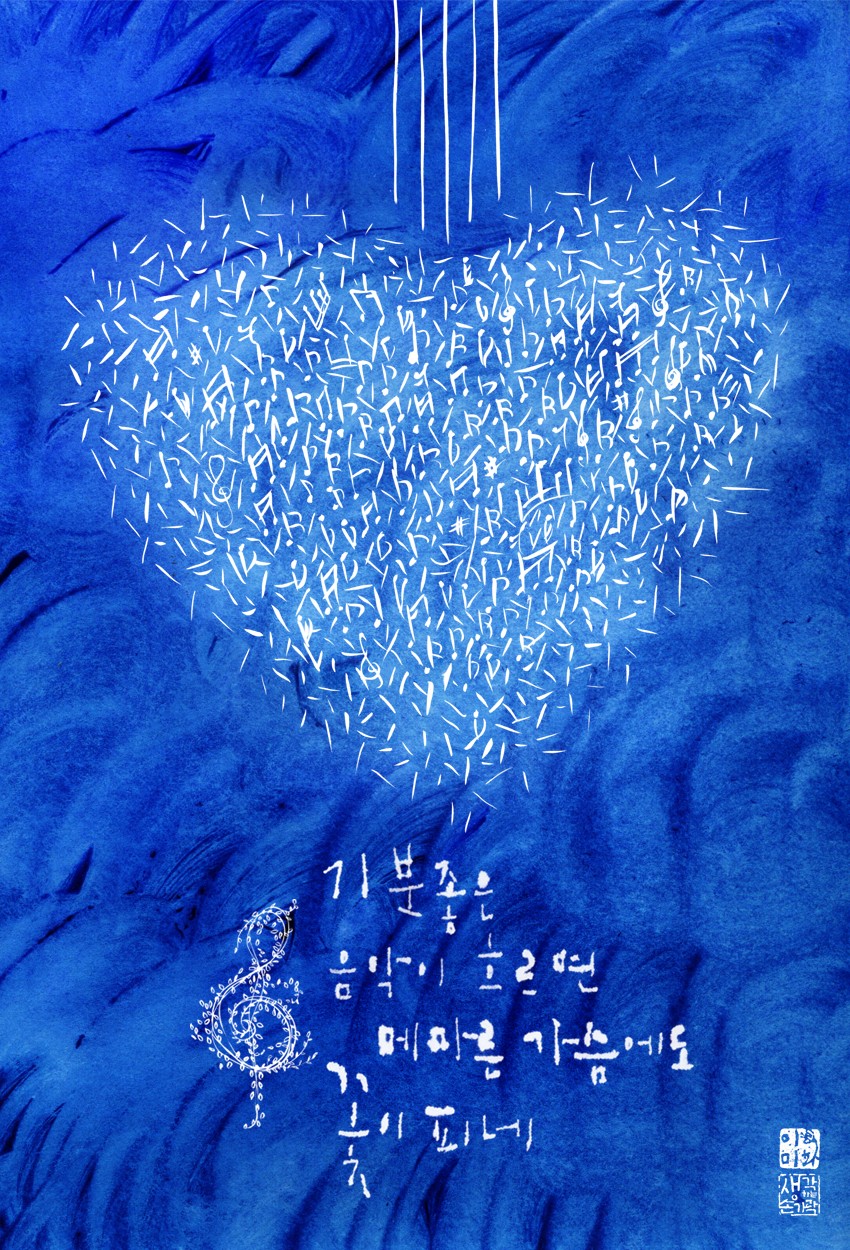 기분좋은
음악이 흐르면
메마른 가슴에도
꽃이 피네
생각하는
손가락